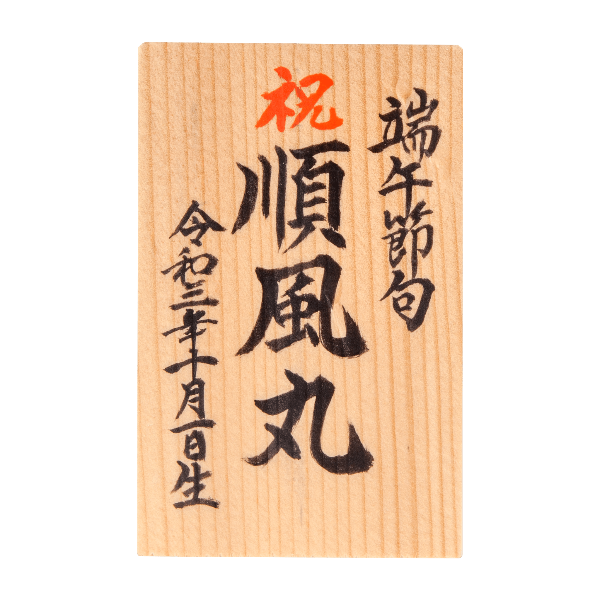 端午節句
祝
順風丸
令和三年十月一日生